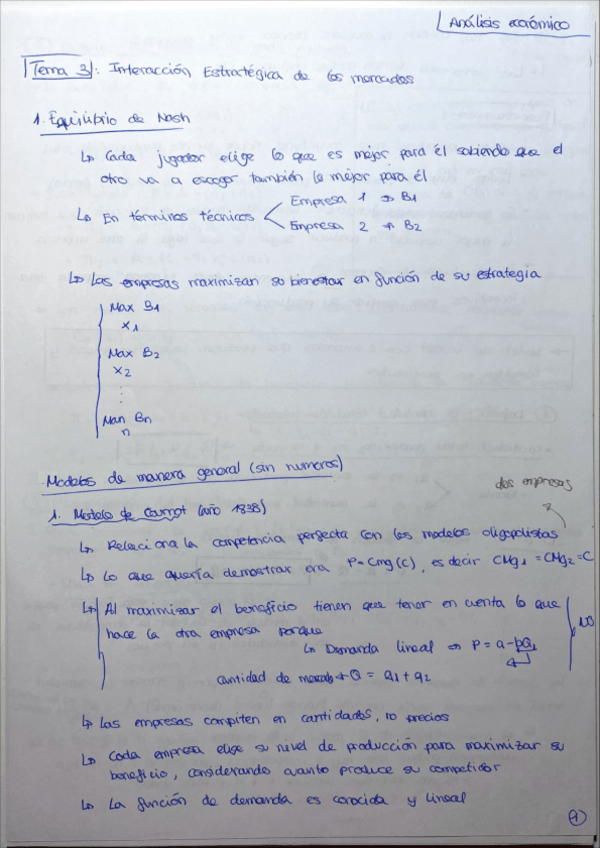 Análisis económico
Tema 3: Interacción Estratégica de los mercados
1. Equilibrio de Nash
↳ Cada jugador elige lo que es mejor para él sabiendo que el
otro va a escoger también lo mejor para él
↳ En términos técnicos < Empresa 1 ⇒ B1
Empresa 2 ⇒ B2
↳ Las empresas maximizan su bienestar en función de su estrategia
Max B1
x1
Max B2
x2
⋮
Man Bn
n
Modelos de manera general (sin numeros)
dos empresas
1. Modelo de Cournot (año 1838)
↳ Relaciona la competencia perfecta con los modelos oligopolistas
↳ Lo que quería demostrar era P=Cmg(C), es decir CMg1 = CMg2 = C
↳ Al maximizar el beneficio tienen que tener en cuenta lo que
hace la otra empresa porque
↳ Demanda lineal ⇒ P = a-bQ
cantidad de mercado → Q = q1 + q2
↳ Las empresas compiten en cantidades, no precios
↳ Cada empresa elige su nivel de producción para maximizar su
beneficio, considerando cuanto produce su competidor
↳ La función de demanda es conocida y lineal
1